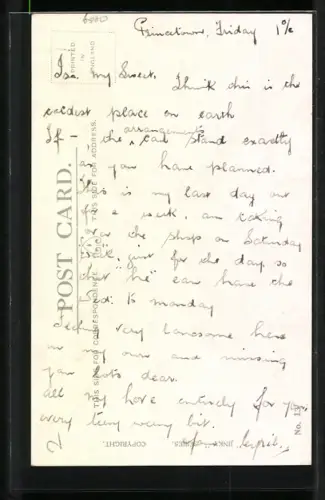 6000
Princetown, Friday
Isa my Sweet. Think this is the
coldest place on earth
If - the arrangements can stand exactly
as you have planned.
This is my last day out
for a week. am taking
the shop on Saturday
just for the day, so
that "he" can have the
to monday
feeling very lonesome here
on my own and missing
you lots dear.
all my love entirely for you
every teeny weeny bit.
Cyril.
PRINTED
IN
ENGLAND
POST CARD.
THIS SIDE FOR CORRESPONDENCE
THIS SIDE FOR ADDRESS.
COPYRIGHT.
SERIES.
No.